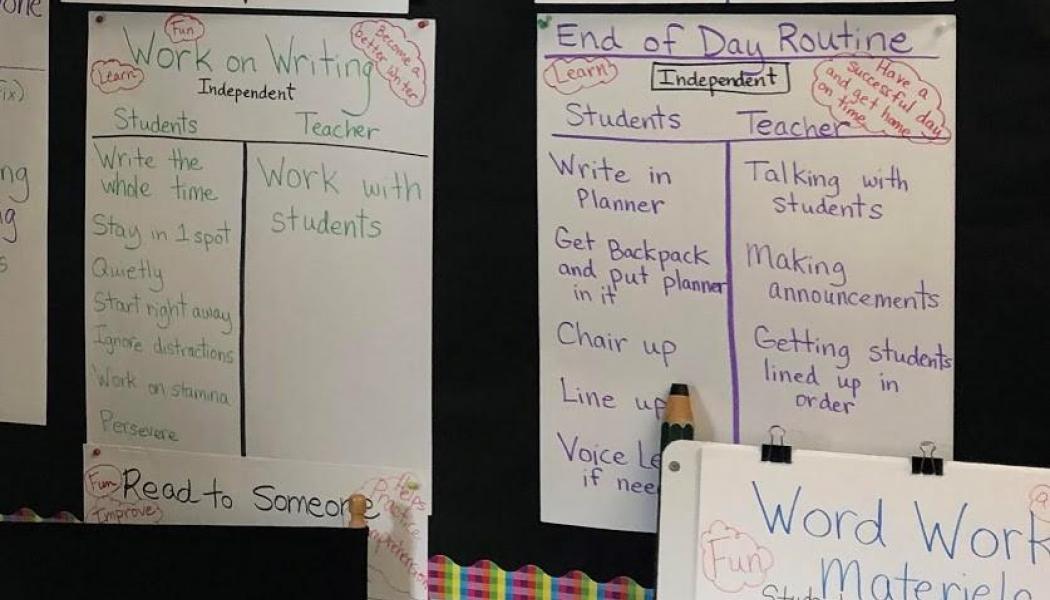 ix)
ng
Fun
Work on Writing
Learn
Become a
better writer
Independent
Students
Teacher
Write the
whole time
Stay in 1 spot
Quietly
Start right away
Ignore distractions
Work on stamina
Persevere
Work with
students
Fun
Read to Someone
Improves
Helps
Practice
End of Day Routine
Learn
Independent
Have a
successful day
and get home
on time
Students
Teacher
Write in
Planner
Get Backpack
and put planner
in it
Chair up
Line up
Voice Le
if nee
Talking with
students
Making
announcements
Getting students
lined up in
order
Word Work
Fun
Materials
Stud